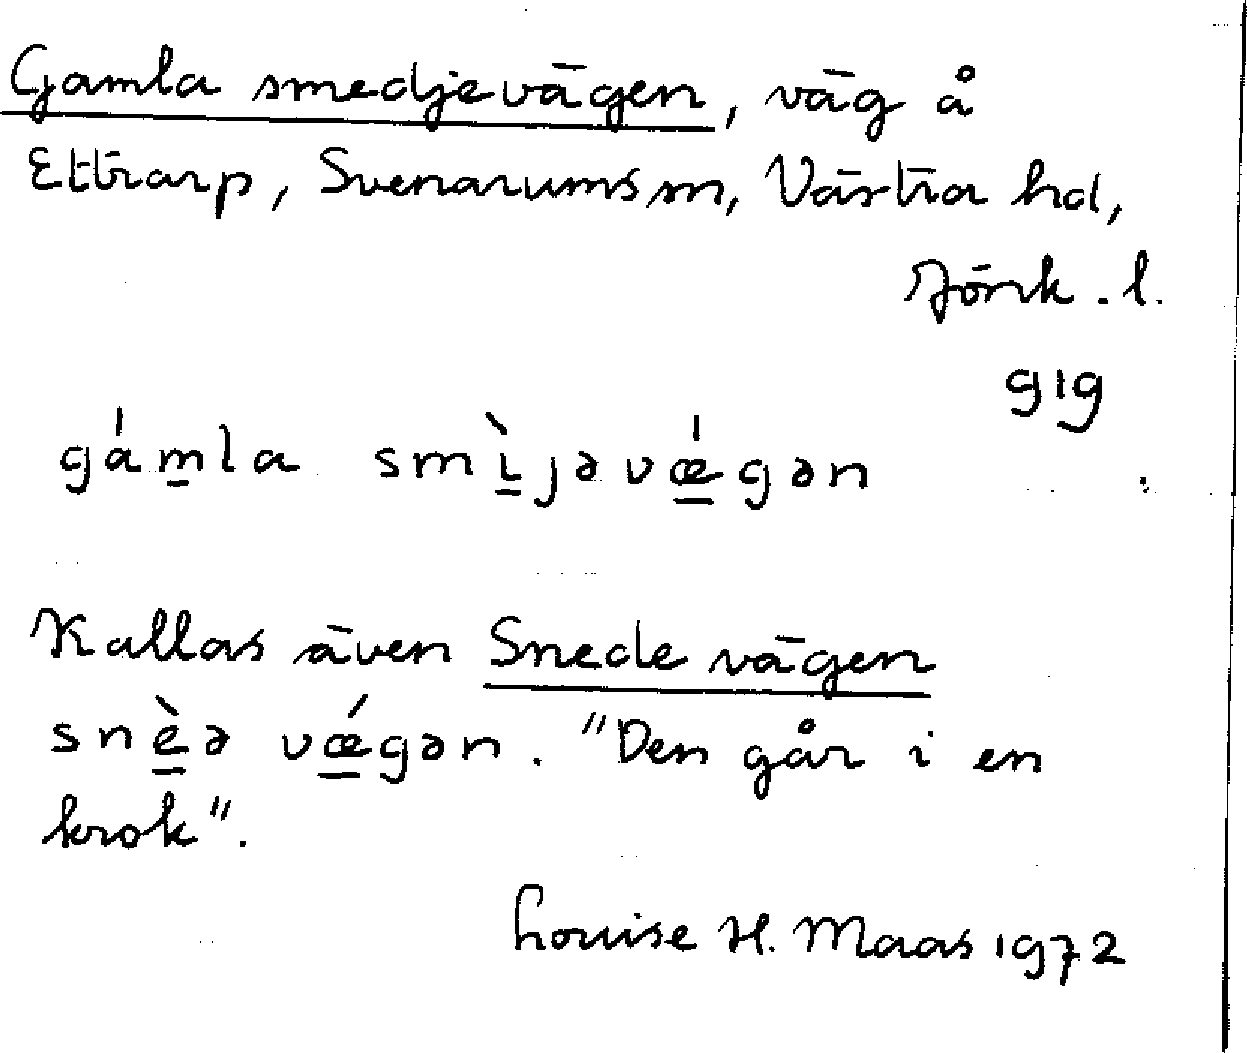 Gamla smedjevägen, väg å
Ettrarp, Svenarums sn, Västra hd,
Jönk. l.
g1g
gámla smìjəvǽgən
Kallas även Snede vägen
snèə vǽgən. "Den går i en
krok".
Louise H. Maas 1972